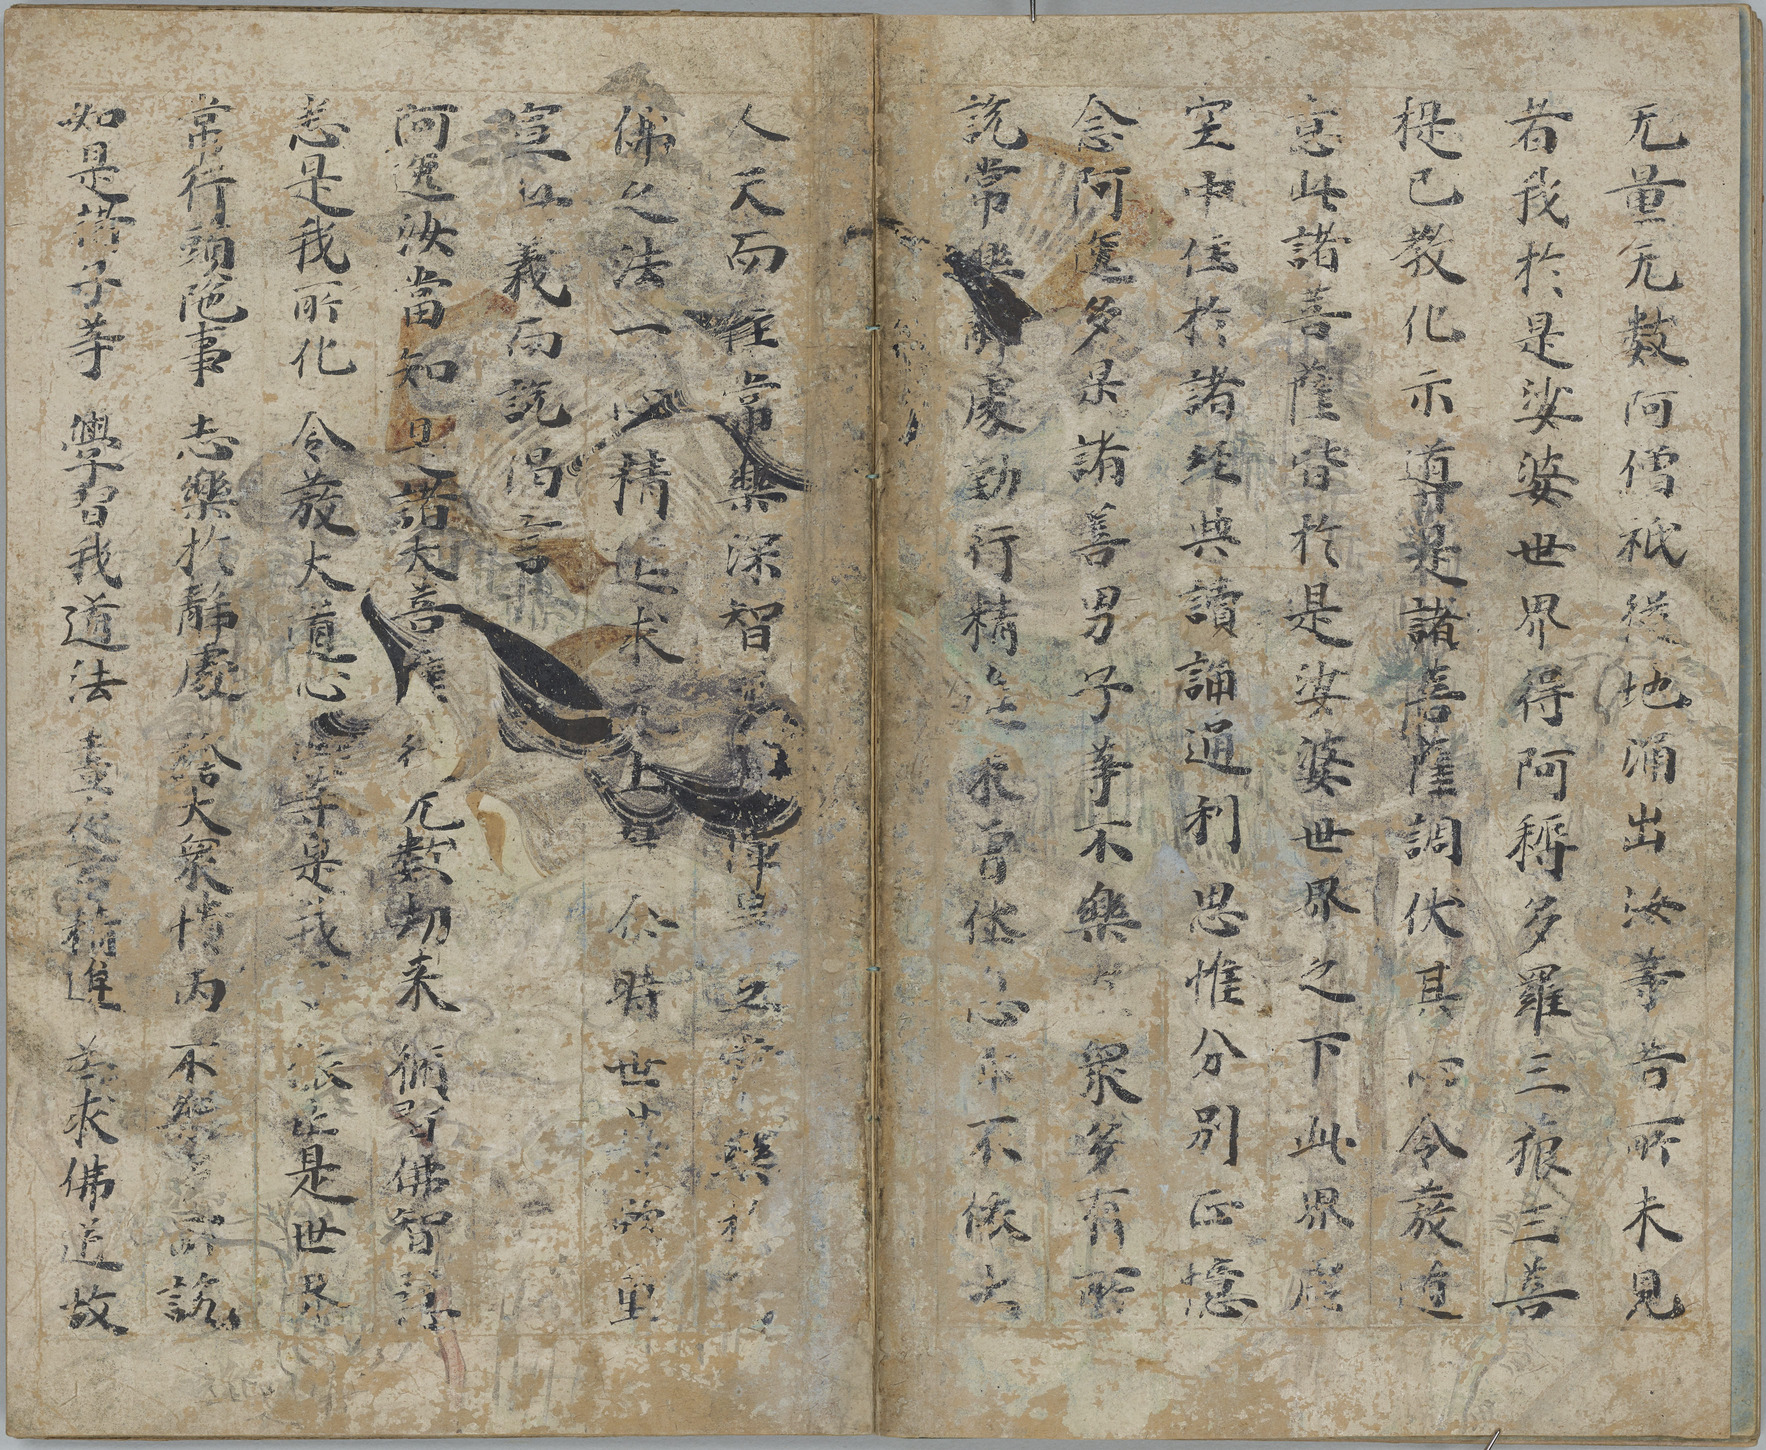 无量无數阿僧祇從地涌出汝等昔所未見
者我於是娑婆世界得阿耨多羅三藐三菩
提已教化示導是諸菩薩調伏其心令發道
意此諸菩薩皆於是娑婆世界之下此界虛
空中住於諸經典讀誦通利思惟分別正憶
念阿逸多是諸善男子等不樂眾多有所
說常樂靜處勤行精進未曾休息亦不依止
人天而住常樂深智障之常樂於
佛之法一心精進求无上尒時世尊欲重
宣此義而說偈言
阿逸汝當知 是諸大菩薩 從无數劫来 脩習佛智慧
悉是我所化 令發大道心 此等是我 依止是世界
常行頭陁事 志樂於靜處 捨大衆憒丙 不樂多所說
如是諸子等 學習我道法 晝夜常精進 為求佛道故